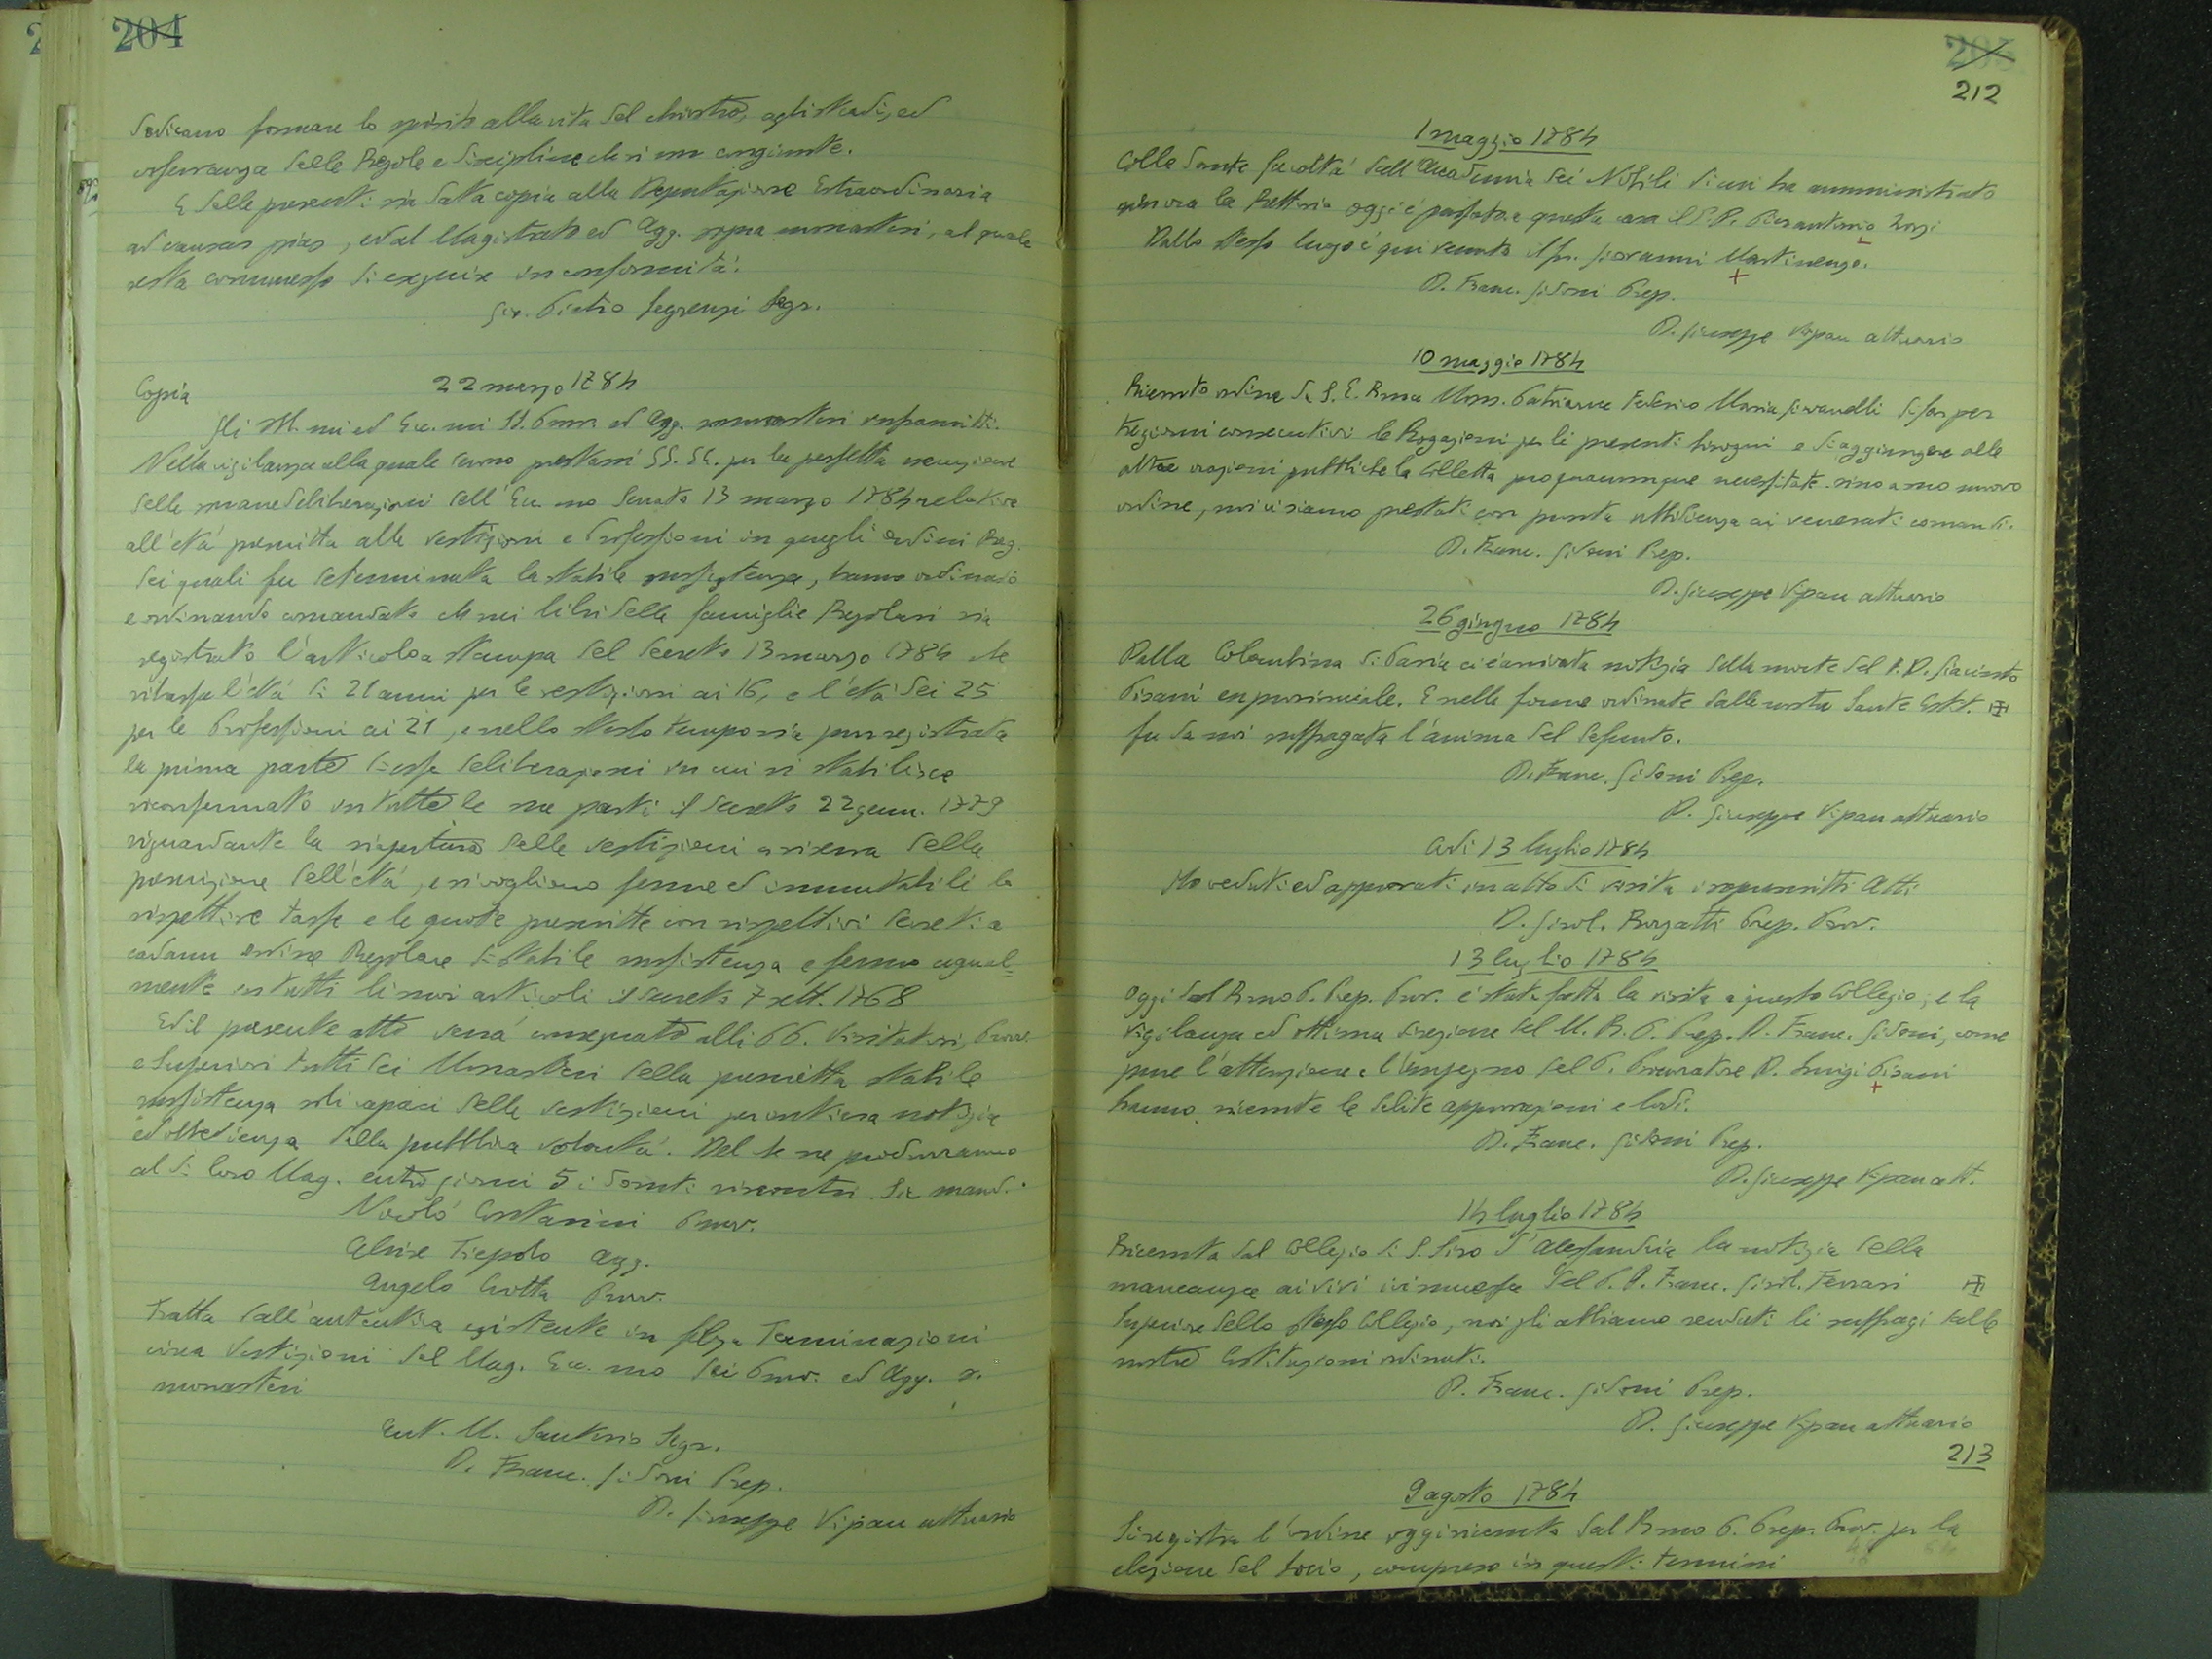 204
devicano formare lo spirito alla vita del chiostro, agli studi, ed
osservanza delle Regole e discipline che si ver congiunte.
E delle presenti sia data copia alla Deputazione Estraordinaria
ad causas pias, ed al Magistrato ed Agg. sopra monasteri, al quale
resta commesso di eseguire in conformità.
Gio. Pietro Legrenzi Segr.
Copia 22 marzo 1784
Gli Ill.mi ed Ecc.mi SS. Provv. ed Agg. sommonasteri infrascritti.
Nella vigilanza alla quale sono prestarsi SS. EE. per la perfetta esecuzione
delle sovrane deliberazioni dell'Ecc.mo Senato 13 marzo 1784 relative
all'età prescritta alle vestizioni e Professioni in quegli ordini Reg.
dei quali fu determinata la stabile sussistenza, hanno ordinato
e ordinando comandato che nei libri delle famiglie Regolari sia
registrato l'articolo a stampa del decreto 13 marzo 1784 che
ribassa l'età di 21 anni per le vestizioni ai 16, e l'età dei 25
per le Professioni ai 21, e nello stesso tempo sia pur registrata
la prima parte d'essa deliberazioni in cui si stabilisce
riconfermato in tutte le sue parti il decreto 22 genn. 1779
riguardante la riapertura delle vestizioni a riserva della
prescrizione dell'età, e si vogliono ferme ed immutabili le
rispettive tasse e le quote prescritte con rispettivi decreti a
cadaun ordine Regolare di stabile sussistenza e fermo egual=
mente in tutti li suoi articoli il decreto 7 sett. 1768
Ed il presente atto verrà consegnato alli PP. Visitatori, Provv.
e Superiori tutti dei Monasteri della prescritta stabile
sussistenza soli capaci delle vestizioni per intiera notizia
ed obbedienza della pubblica volontà. Del che ne produrranno
al di loro Mag. entro giorni 5 i dovuti riscontri. Sic mand.
Nicolò Contarini Provv.
Alvise Tiepolo Agg.
Angelo Crotta Provv.
Tratta dall'autentica esistente in filza Terminazioni
circa Vestizioni del Mag. Ecc.mo dei Provv. ed Agg. s.
monasteri
Ent. M. Santorio Segr.
D. Franc. Gidoni Prep.
D. Giuseppe Vipau attuario
205
212
1 maggio 1784
Colle dovute facoltà dall'Accademia dei Nobili di cui ha amministrato
sin ora la Rettoria oggi è passato a questa casa il P. D. Pierantonio Zorzi
Dallo stesso luogo è qui venuto il fr. Giovanni Martinengo.
D. Franc. Gidoni Prep.
D. Giuseppe Vipau attuario
10 maggio 1784
Ricevuto ordine da S. E. Rma Mons. Patriarca Federico Maria Giovanelli di far per
tre giorni consecutivi le Rogazioni per li presenti bisogni e di aggiungere alle
altre orazioni pubbliche la Colletta pro quacumque necessitate sino a suo nuovo
ordine, noi ci siamo prestati con pronta ubbidienza ai venerati comandi.
D. Franc. Gidoni Prep.
D. Giuseppe Vipau attuario
26 giugno 1784
Dalla Colombina di Pavia ci è arrivata notizia della morte del P. D. Giacinto
Pisani exprovinciale. E nelle forme ordinate dalle nostre Sante Cost.
fu da noi suffragata l'anima del defunto.
D. Franc. Gidoni Prep.
D. Giuseppe Vipau attuario
Adì 13 luglio 1784
Ho veduti ed approvati in atto di visita i soprascritti Atti
D. Girol. Rogatti Prep. Prov.
13 luglio 1784
Oggi dal Rmo P. Prep. Prov. è stata fatta la visita a questo Collegio, e la
vigilanza ed ottima direzione del M. R. P. Prep. D. Franc. Gidoni, come
pure l'attenzione e l'impegno del P. Procuratore D. Luigi Pisani
hanno ricevute le solite approvazioni e lodi.
D. Franc. Gidoni Prep.
D. Giuseppe Vipau att.
14 luglio 1784
Ricevuta dal Collegio di S. Siro d'Alessandria la notizia della
mancanza ai vivi ivi successa del P. D. Franc. Girol. Ferrari
Superiore dello stesso Collegio, noi gli abbiamo renduti li suffragi dalle
nostre Costituzioni ordinati.
D. Franc. Gidoni Prep.
D. Giuseppe Vipau attuario
213
9 agosto 1784
Si registra l'ordine oggi ricevuto dal Rmo P. Prep. Prov. per la
elezione del Socio, compreso in questi termini